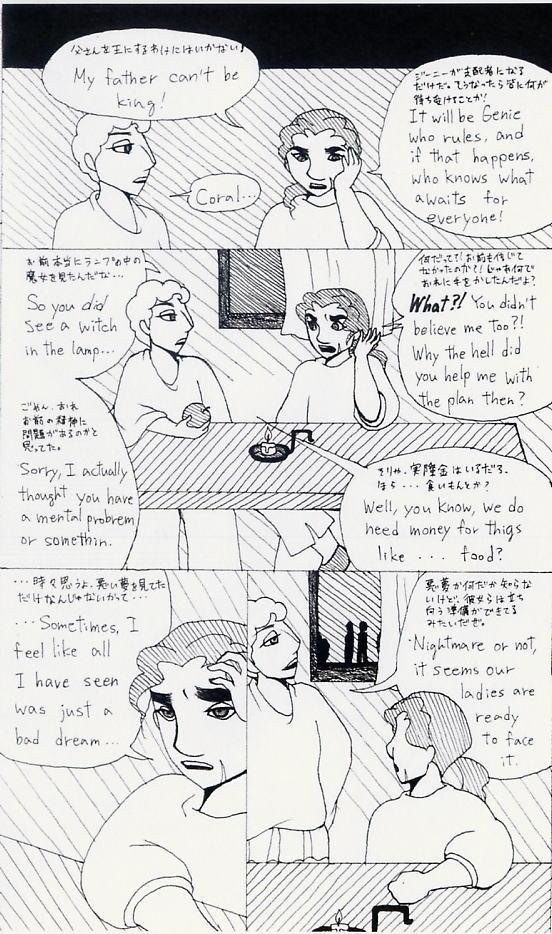 父さんを王にするわけにはいかない!
My father can't be
king!
Coral...
ジーニーが支配者になる
だけだ。そうなったら皆に何が
待ち受けることか!
It will be Genie
who rules, and
if that happens,
who knows what
awaits for
everyone!
お前本当にランプの中の
魔女を見たんだな...
So you did
see a witch
in the lamp...
何だって!お前も信じて
なかったのかて!じゃあ何で
おれに手をかしたんだよ?
What?! You didn't
believe me too?!
Why the hell did
you help me with
the plan then?
ごめん、おれ
お前の精神に
問題があるのかと
思ってた。
Sorry, I actually
thought you have
a mental probrem
or somethin.
そりゃ、実際金はいるだろ、
ほら...食いもんとか?
Well, you know, we do
need money for thigs
like ... food?
...時々思うよ、悪い夢を見てた
だけなんじゃないかって...
...Sometimes, I
feel like all
I have seen
was just a
bad dream...
悪夢か何だか知らな
いけど、彼女らは立ち
向う準備ができてる
みたいだぜ。
Nightmare or not,
it seems our
ladies are
ready
to face
it.